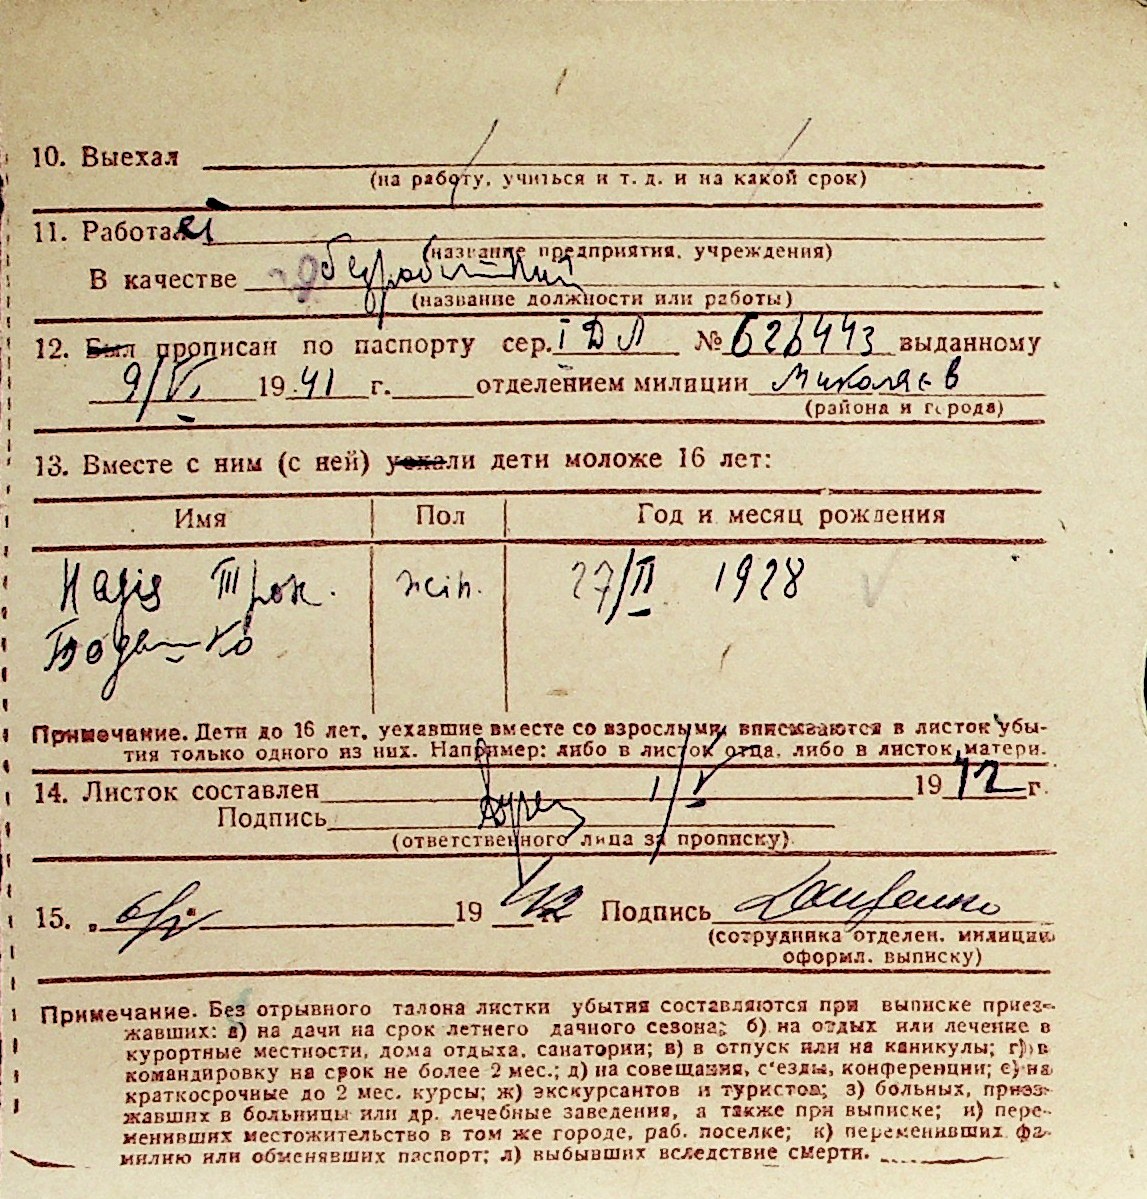 10. Выехал
(на работу, учиться и т. д. и на какой срок)
11. Работал
(название предприятия, учреждения)
В качестве безробітний
(название должности или работы)
12. Был прописан по паспорту сер. І ДЛ № 626443 выданному
9/VI 1941 г. отделением милиции Миколаєв
(района и города)
13. Вместе с ним (с ней) уехали дети моложе 16 лет:
Имя Пол Год и месяц рождения
Надія Трох. жін. 27/II 1928
Примечание. Дети до 16 лет, уехавшие вместе со взрослыми вписываются в листок убы-
тия только одного из них. Например: либо в листок отца, либо в листок матери.
14. Листок составлен 1/V 1942 г.
Подпись
(ответственного лица за прописку)
15. 6/V 1942 Подпись
(сотрудника отделен. милиции
оформл. выписку)
Примечание. Без отрывного талона листки убытия составляются при выписке приез-
жавших: а) на дачи на срок летнего дачного сезона; б) на отдых или лечение в
курортные местности, дома отдыха, санатории; в) в отпуск или на каникулы; г) в
командировку на срок не более 2 мес.; д) на совещания, с'езды, конференции; е) на
краткосрочные до 2 мес. курсы; ж) экскурсантов и туристов; з) больных, приез-
жавших в больницы или др. лечебные заведения, а также при выписке; и) пере-
менивших местожительство в том же городе, раб. поселке; к) переменивших фа-
милию или обменявших паспорт; л) выбывших вследствие смерти.